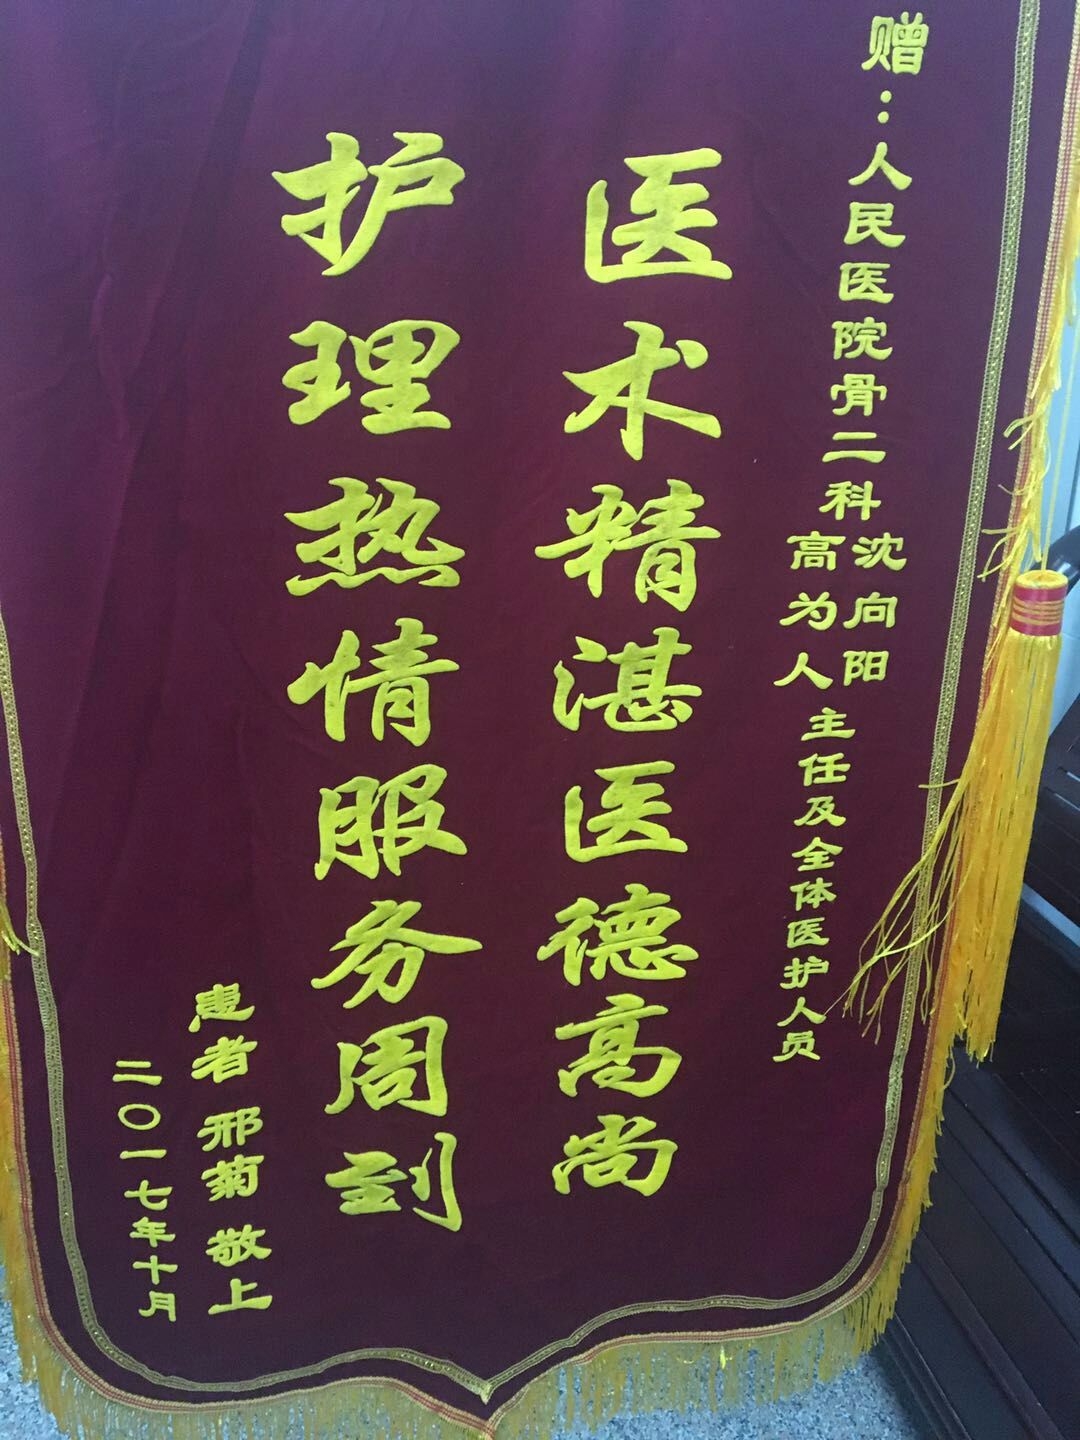 赠：人民医院骨二科沈向阳
高为人主任及全体医护人员
医术精湛医德高尚
护理热情服务周到
患者邢菊敬上
二〇一七年十月